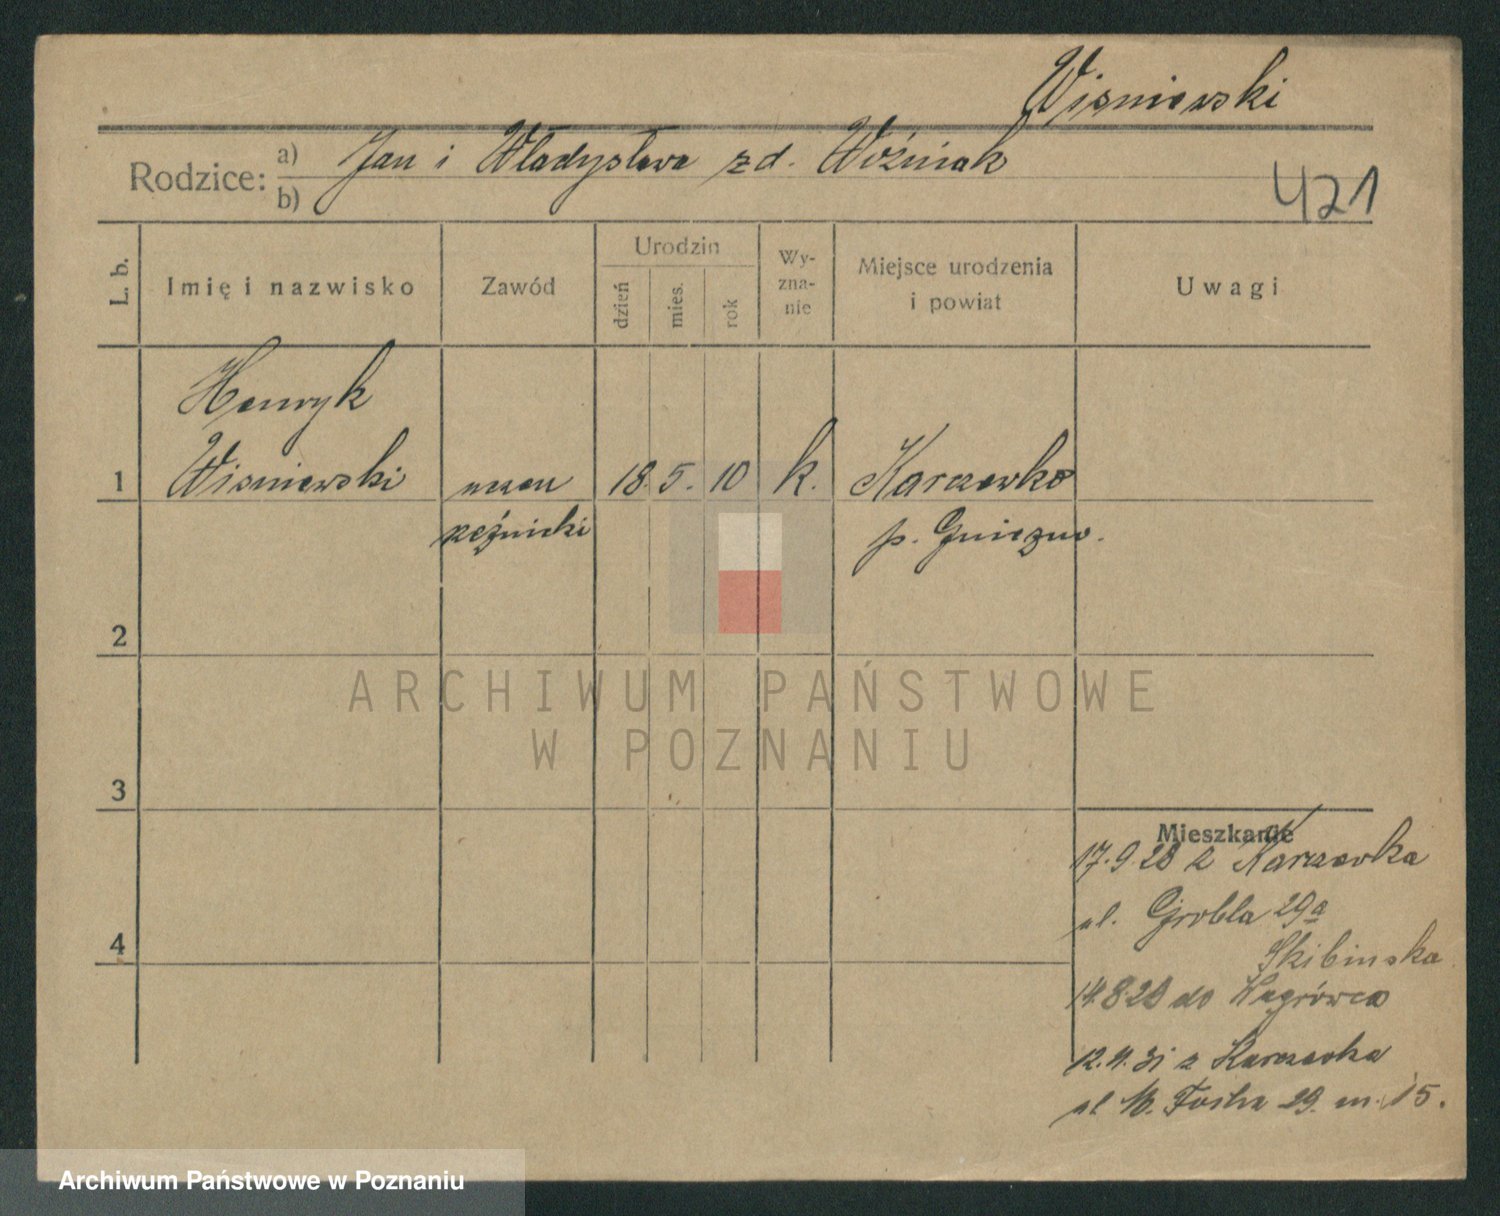 Wisniewski
Rodzice: a) Jan i Władysława zd. Woźniak
b)
421
L. b.
Imię i nazwisko
Zawód
Urodzin
dzień
mies.
rok
Wy-
zna-
nie
Miejsce urodzenia
i powiat
Uwagi
Henryk
1 Wisniewski uczeń 18. 5. 10 k. Karczewko
rzeźnicki p. Gniezno.
2
3
4
Mieszkanie
17.9.28 z Karczewka
ul. Grobla 29a
Skibinska
14.8.29 do
z Karczewka
ul M. Focha 29. m. 15.
ARCHIWUM PAŃSTWOWE
W POZNANIU
Archiwum Państwowe w Poznaniu